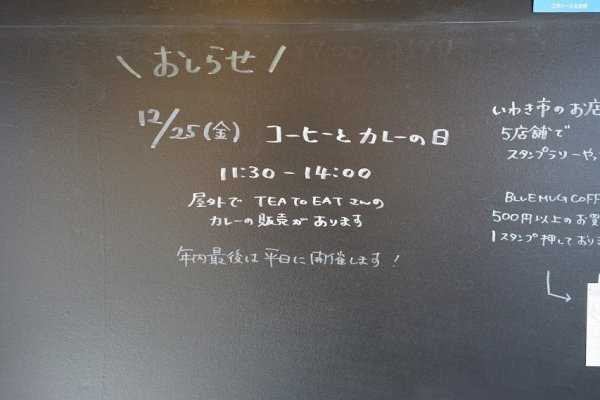 \ おしらせ /
12/25(金) コーヒーと カレーの日
11:30 - 14:00
屋外で TEA To EAT さんの
カレーの 販売が あります
年内最後は 平日に 開催します!
いわき市のお店
5店舗で
スタンプラリーや
BLUE MUG COFF
500円以上のお買
1スタンプ押しており